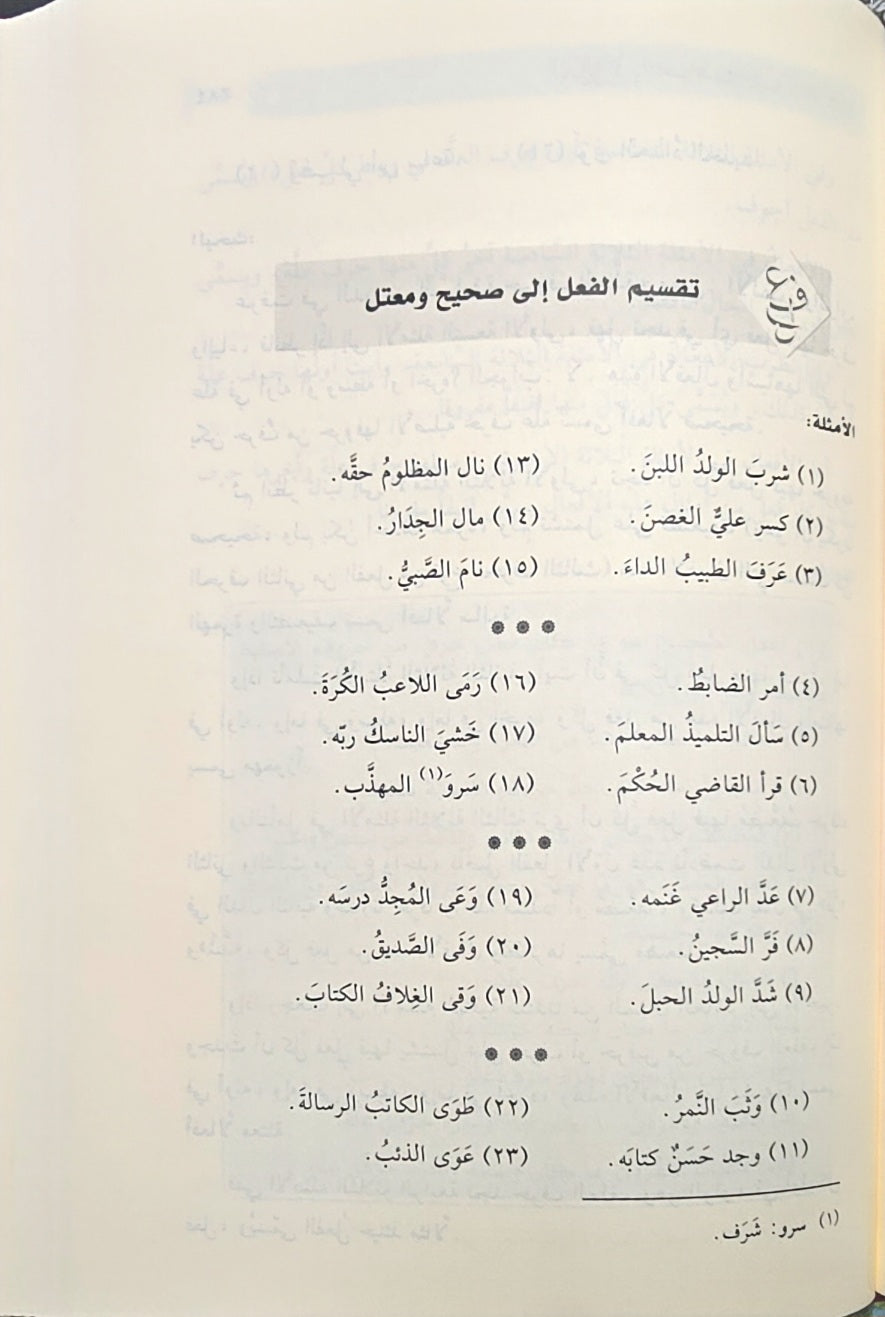 تقسيم الفعل إلى صحيح ومعتل
الأمثلة:
(١) شربَ الولدُ اللبنَ. (١٣) نال المظلومُ حقَّه.
(٢) كسر عليٌّ الغصنَ. (١٤) مال الجِدَارُ.
(٣) عَرَفَ الطبيبُ الداءَ. (١٥) نامَ الصَّبيُّ.
(٤) أمر الضابطُ. (١٦) رَمَى اللاعبُ الكُرَةَ.
(٥) سَألَ التلميذُ المعلمَ. (١٧) خَشيَ الناسكُ ربّه.
(٦) قرأ القاضي الحُكْمَ. (١٨) سَروَ(١) المهذَّب.
(٧) عَدَّ الراعي غَنَمه. (١٩) وَعَى المُجِدُّ درسَه.
(٨) فَرَّ السَّجينُ. (٢٠) وَفَى الصَّديقُ.
(٩) شَدَّ الولدُ الحبلَ. (٢١) وَقى الغِلافُ الكتابَ.
(١٠) وَثَبَ النَّمرُ. (٢٢) طَوَى الكاتبُ الرسالةَ.
(١١) وجد حَسَنٌ كتابَه. (٢٣) عَوَى الذئبُ.
(١) سرو: شَرَف.